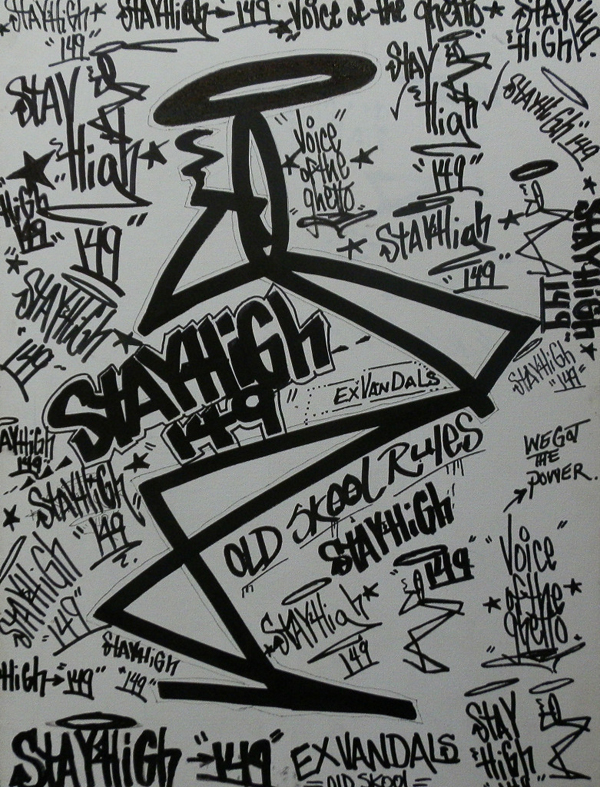 STAYHIGH
"149"
STAYHIGH "149"
"Voice of the ghetto"
STAY
HIGH
STAY
High
"149"
STAY
High
"149"
STAYHIGH
149
"Voice
of the
ghetto"
HIGH
149
STAYHigh
"149"
STAYHIGH
149
STAYHIGH
149
STAYHIGH
149
EXVANDALS
STAYHIGH
"149"
STAYHIGH
149
WE GOT
THE
POWER.
OLD SKOOL RULES
STAYHIGH
149
STAYHIGH
149
STAYHIGH
"149"
"Voice
of the
ghetto"
STAYHigh
149
STAYHIGH
"149"
HIGH "149"
STAY
HIGH
STAYHIGH "149"
EXVANDALS
=OLD SKOOL=